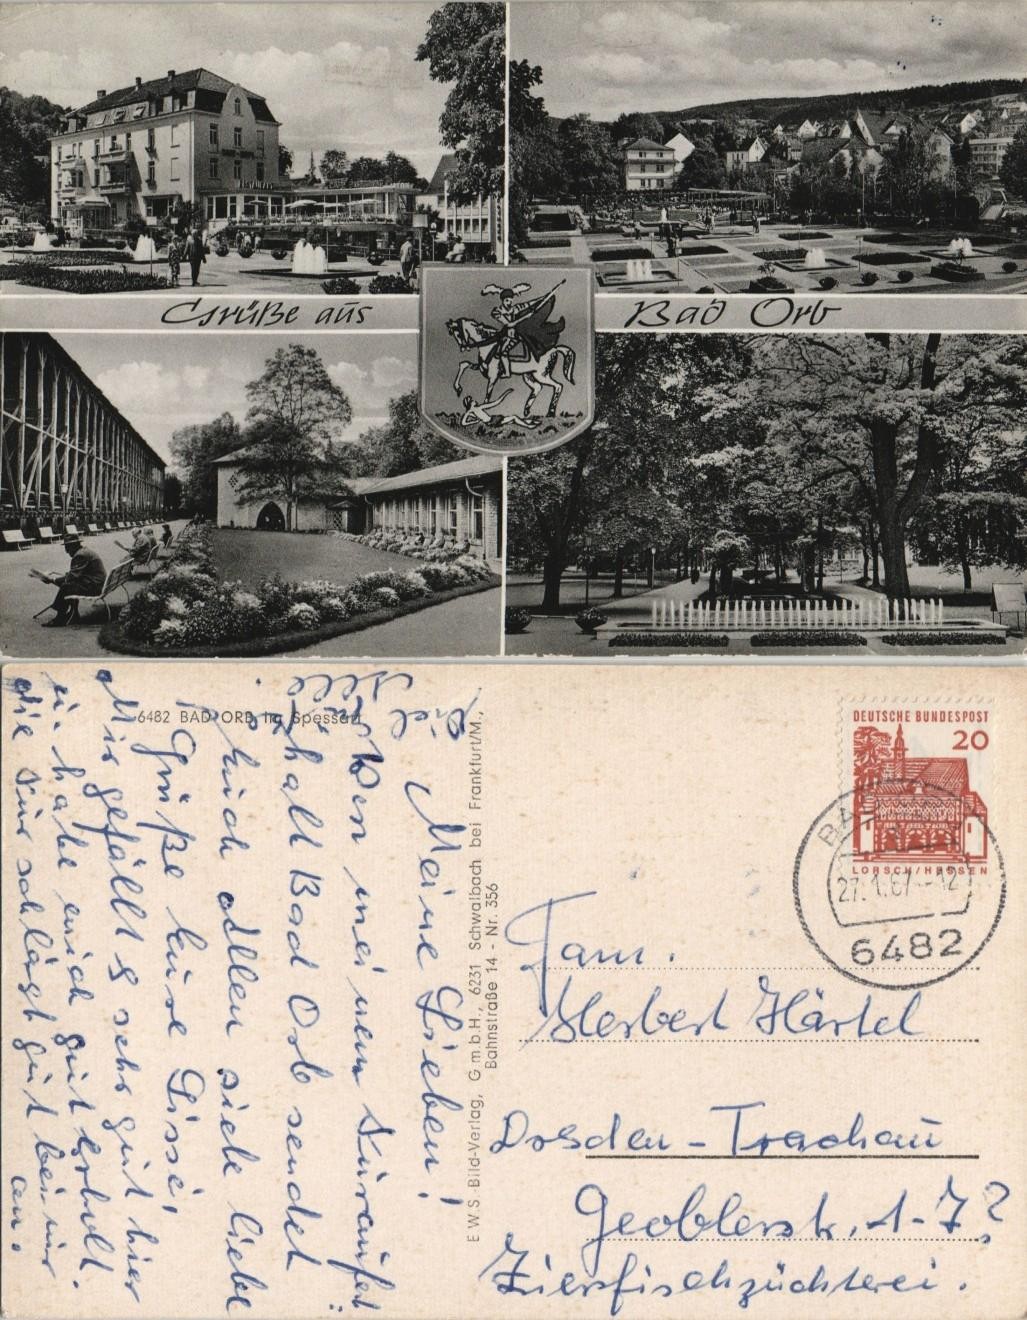 Grüße aus Bad Orb
6482 BAD ORB im Spessart
Meine Lieben!
Von meinem Kuraufent:
halt Bad Orb sendet
Euch allen viele liebe
Grüße Eure Lissi,
Mir gefällt's sehr gut hier
u. habe mich gut erholt.
die Kur schlägt gut bei mir
an.
E.W.S.-Bild-Verlag, G.m.b.H., 6231 Schwalbach bei Frankfurt/M.,
Bahnstraße 14 - Nr. 356
DEUTSCHE BUNDESPOST
20
LORSCH/HESSEN
BAD
27.1.67.-12
6482
Fam.
Herbert Härtel
Dresden-Trachau
Geoblerstr. 1-7?
Zierfischzüchterei.